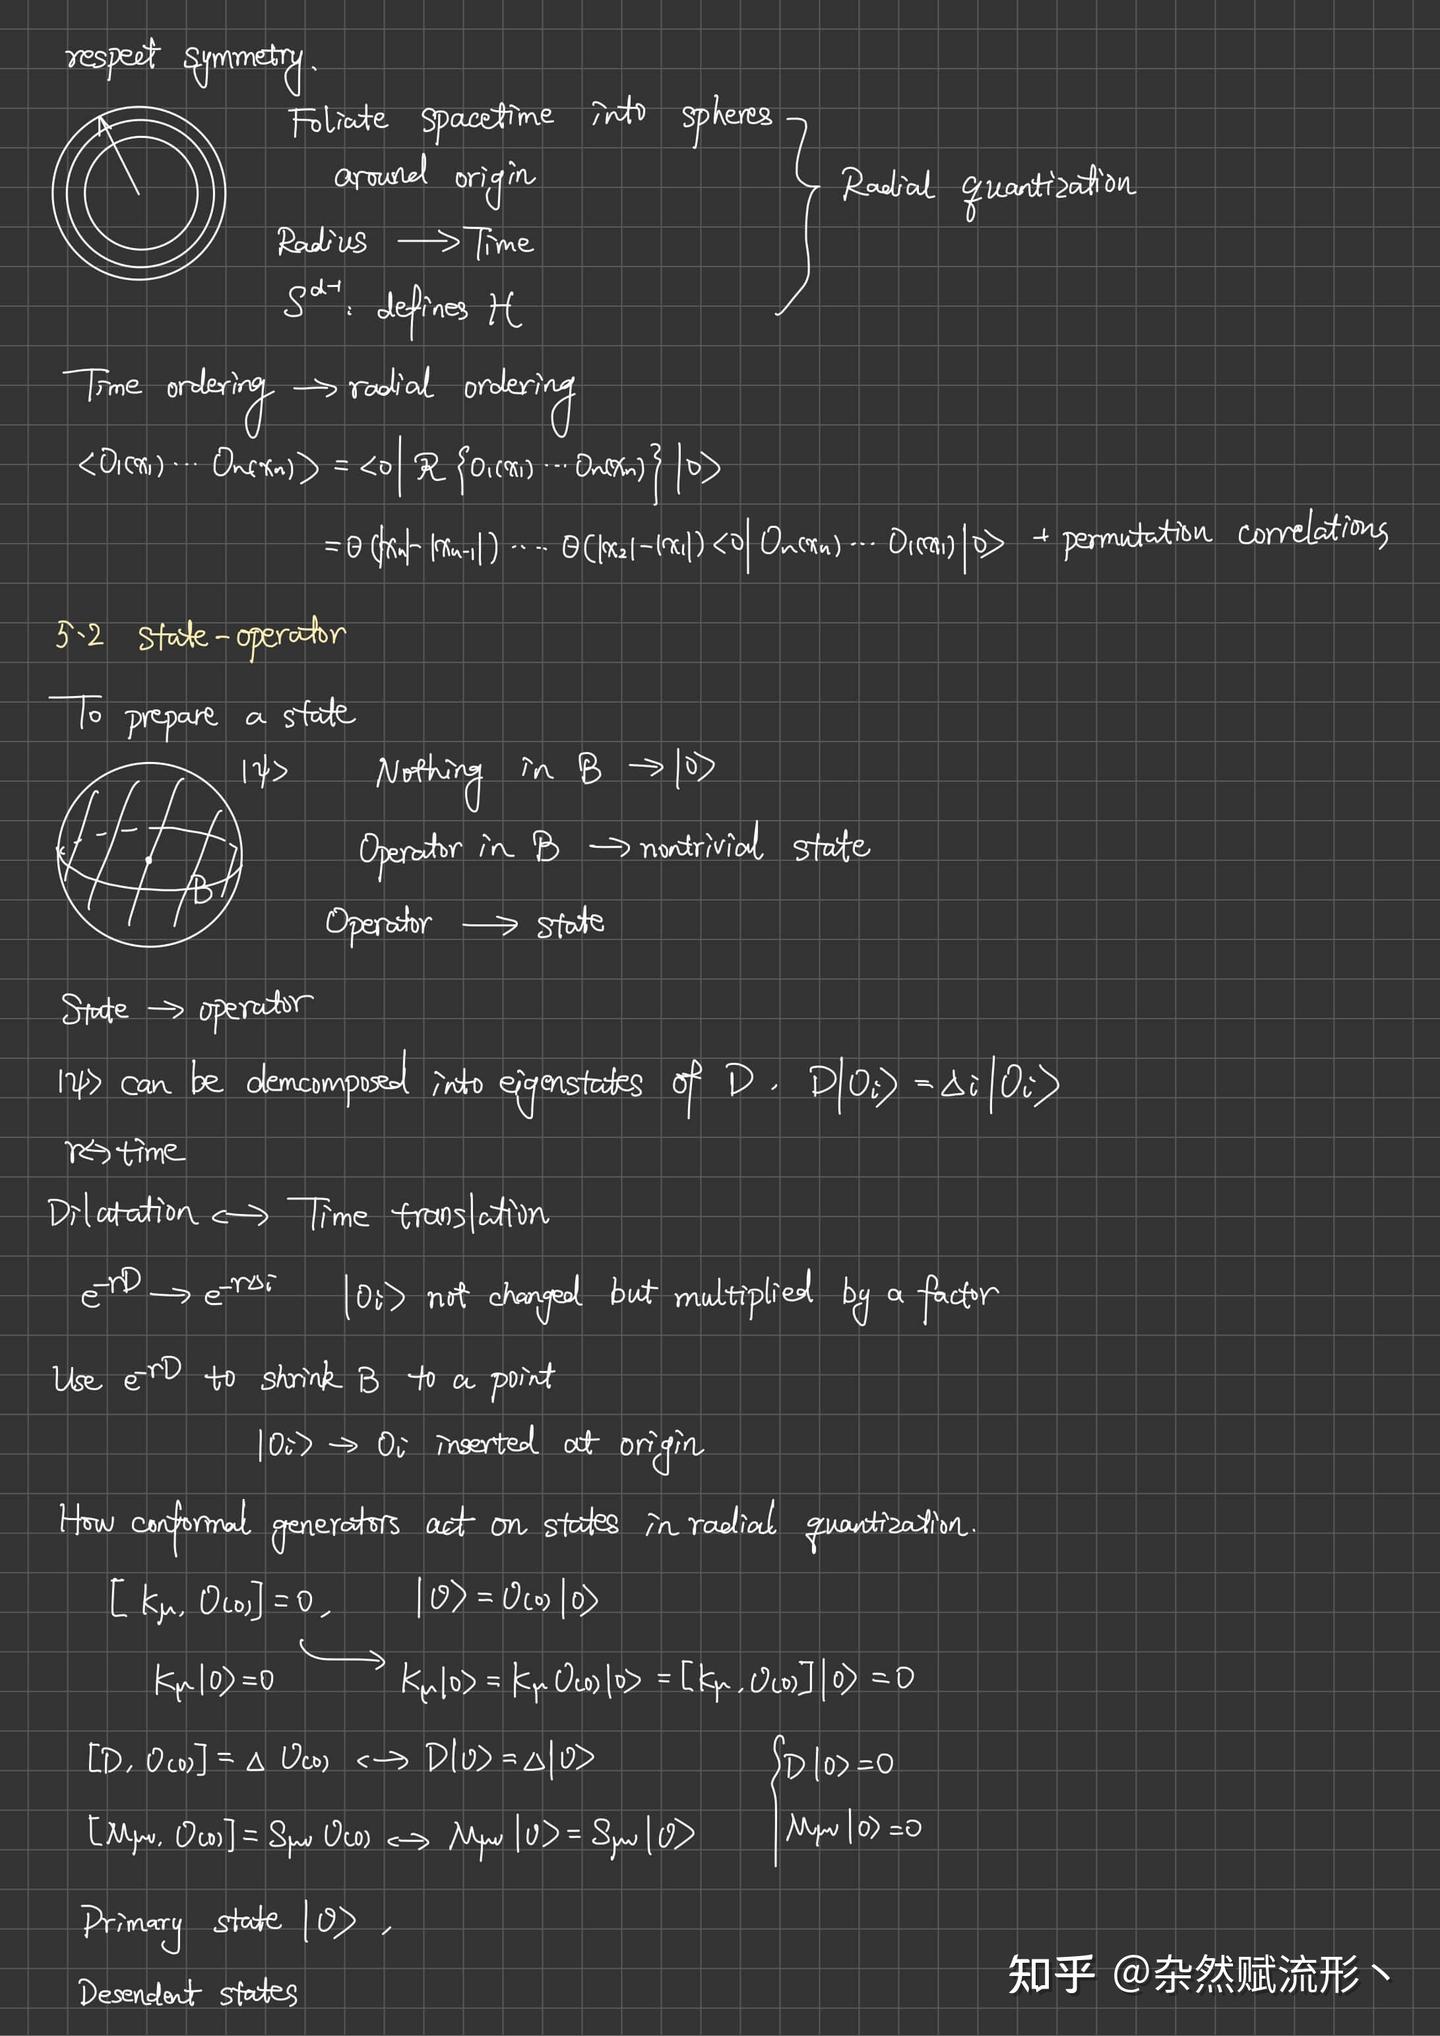 respect symmetry.
Foliate spacetime into spheres
around origin
Radial quantization
Radius → Time
S^{d-1}: defines H
Time ordering → radial ordering
<O₁(x₁)··· Oₙ(xₙ)> = <0| R {O₁(x₁)···Oₙ(xₙ)} |0>
= θ(|xₙ|-|xₙ₋₁|) ···· θ(|x₂|-|x₁|) <0| Oₙ(xₙ) ··· O₁(x₁) |0> + permutation correlations
5.2 state-operator
To prepare a state
|ψ> Nothing in B → |0>
Operator in B → nontrivial state
B
Operator → state
State → operator
|ψ> can be demcomposed into eigenstates of D. D|Oᵢ> = Δᵢ|Oᵢ>
r↔time
Dilatation ↔ Time translation
e^{-rD} → e^{-rΔᵢ} |Oᵢ> not changed but multiplied by a factor
Use e^{-rD} to shrink B to a point
|Oᵢ> → Oᵢ inserted at origin
How conformal generators act on states in radial quantization.
[Kμ, O(0)] = 0, |O> = O(0)|0>
Kμ|0>=0 Kμ|O> = Kμ O(0)|0> = [Kμ, O(0)]|0> = 0
[D, O(0)] = Δ O(0) ↔ D|O> = Δ|O> { D|0>=0
[Mμν, O(0)] = Sμν O(0) ↔ Mμν|O> = Sμν|O> Mμν|0>=0
Primary state |O>,
Desendent states
知乎 @杂然赋流形丶